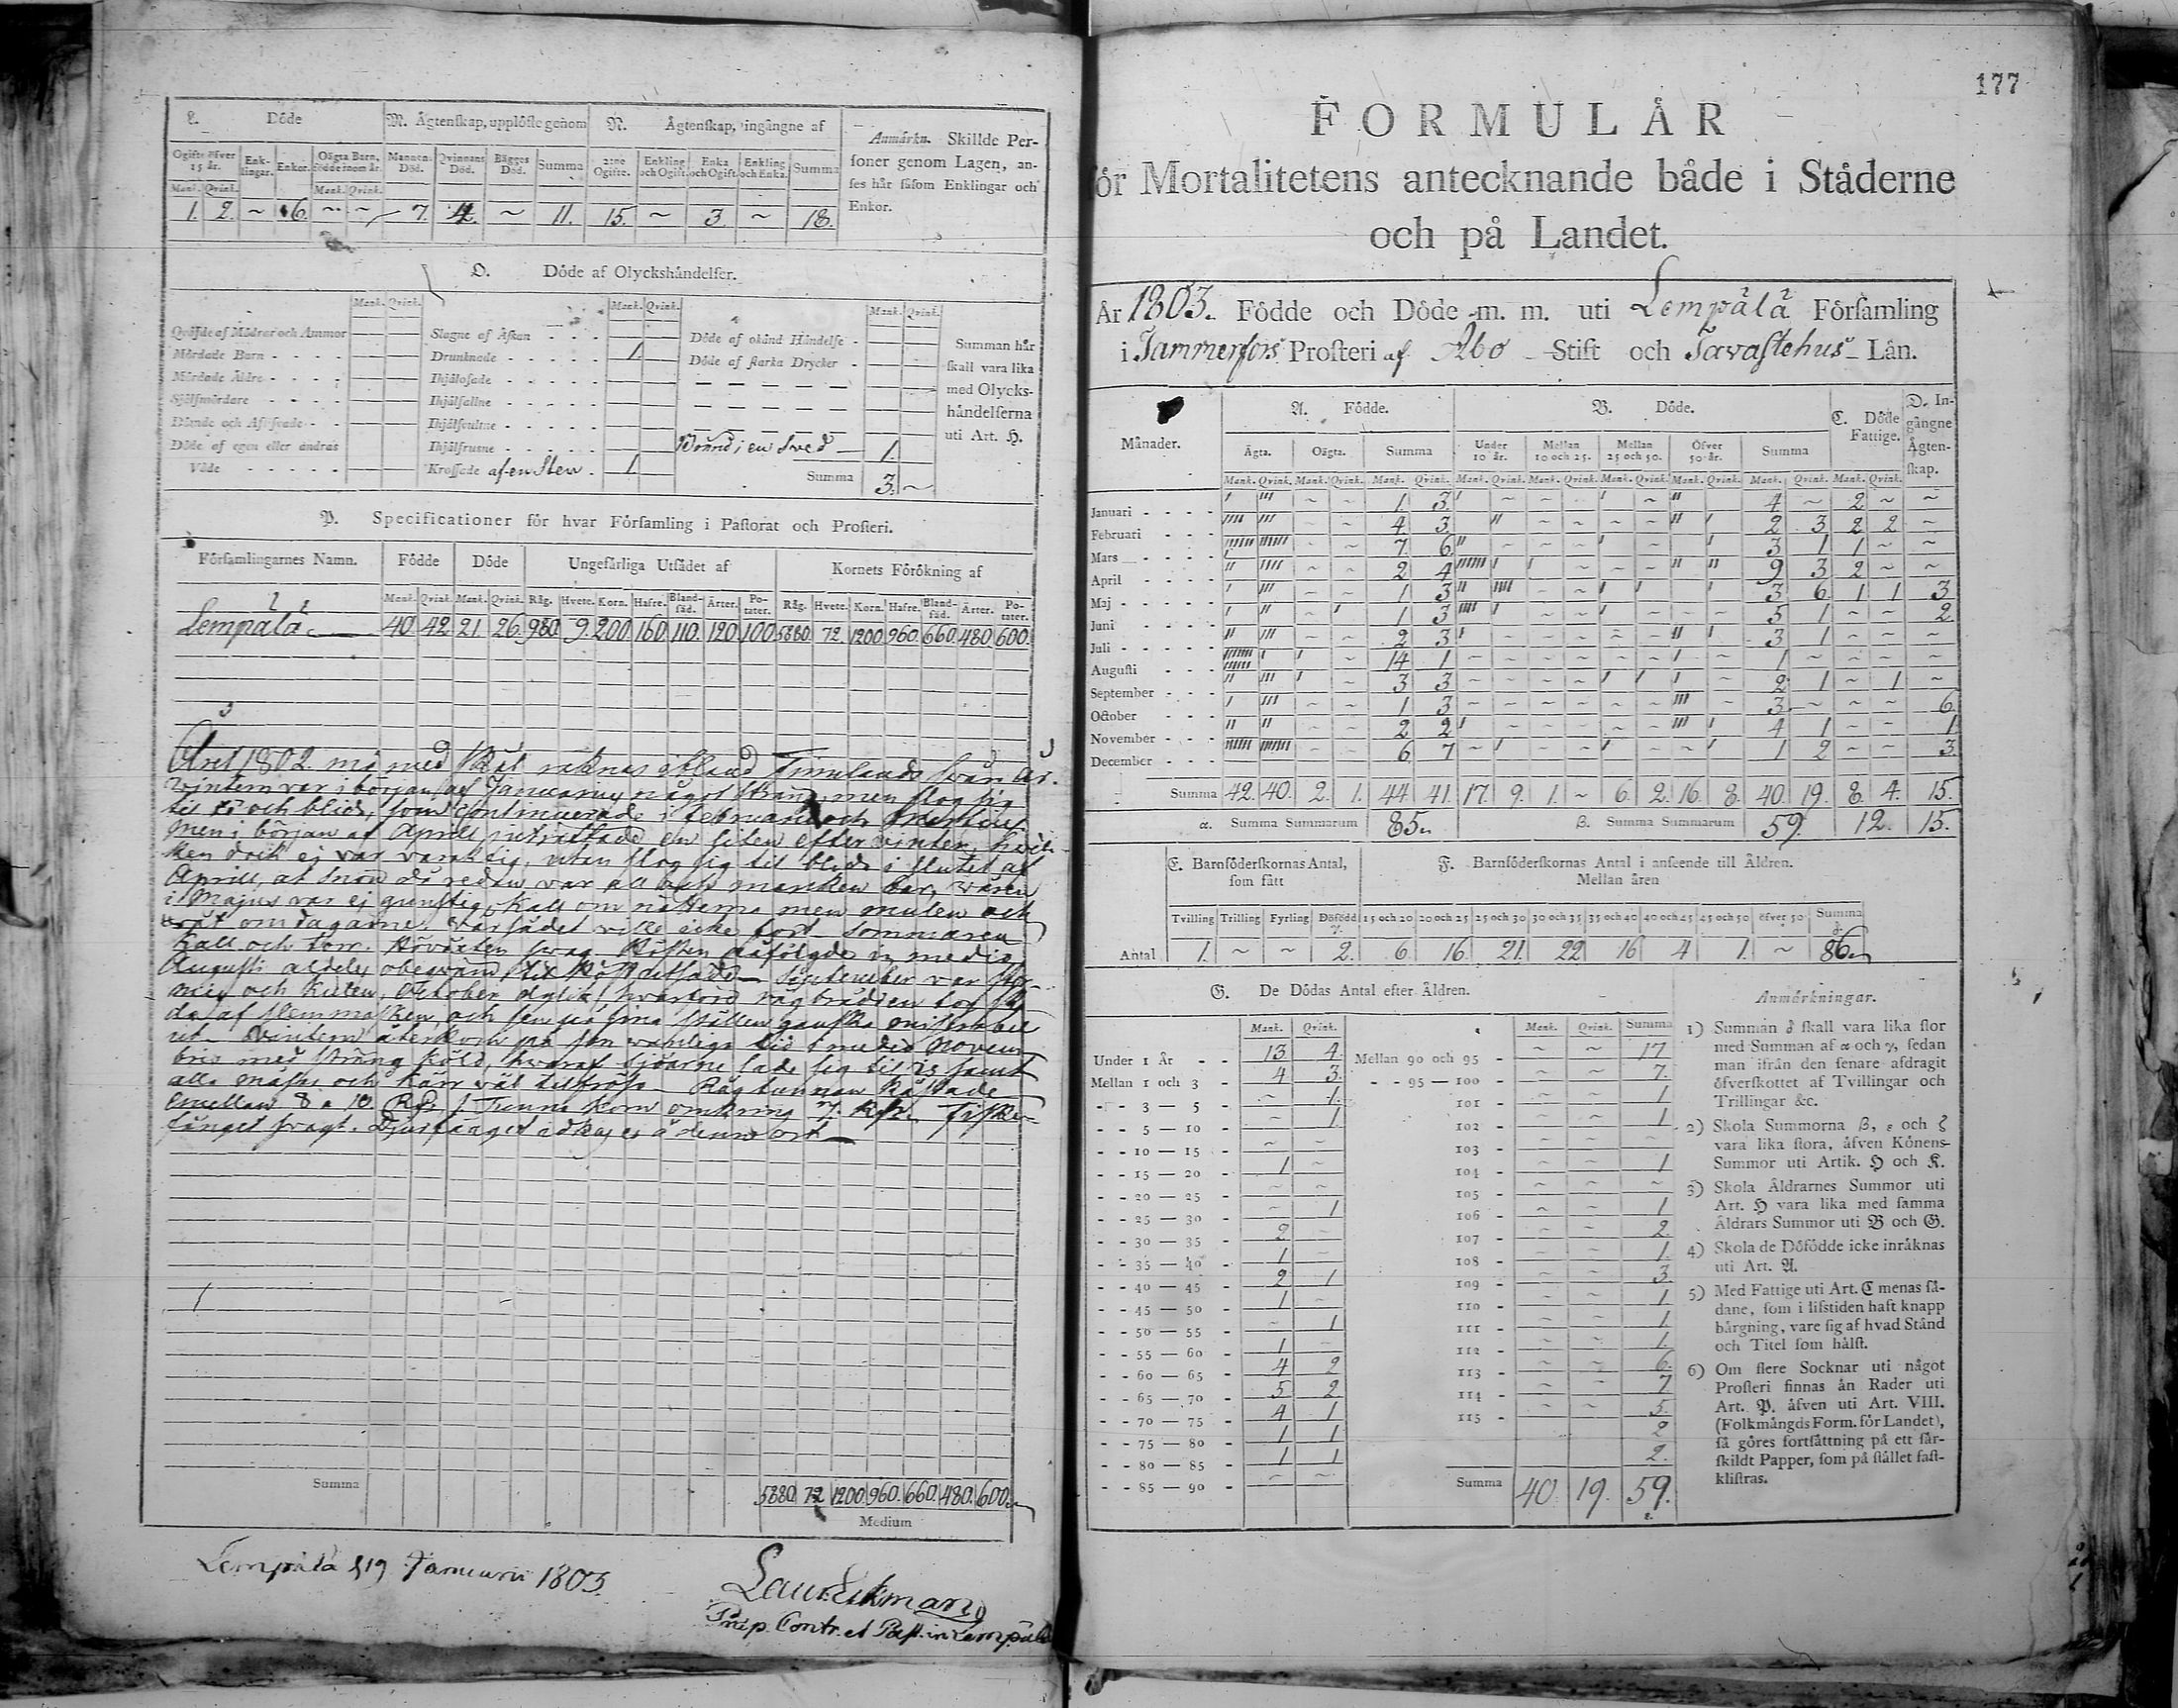 L. Döde
M. Ägtenskap, upplöste genom
N. Ägtenskap, ingångne af
Ogifte öfver 15 år.
Enklingar.
Enkor.
Oägta Barn, födde inom år.
Mannens Död.
Qvinnans Död.
Bägges Död.
Summa
2:ne Ogifte.
Enkling och Ogift.
Enka och Ogift.
Enkling och Enka.
Summa
Mank. Qvink. Mank. Qvink.
1. 2. ~ 6. ~ ~ 7. 4. ~ 11. 15. ~ 3. ~ 18.
Anmärkn. Skillde Per-
soner genom Lagen, an-
ses här såsom Enklingar och
Enkor.
O. Döde af Olyckshändelser.
Mank. Qvink. Mank. Qvink. Mank. Qvink.
Qväfde af Mödrar och Ammor
Mördade Barn
Mördade Äldre
Självmördare
Döde af egen eller andras
Våde
Slagne af Åskan
Drunknade 1.
Ihjälfrusne
Krossade af en Sten 1.
Döde af okänd Händelse
Döde af starka Drycker
i en Sved 1.
Summa 3. ~
Summan här
skall vara lika
med Olycks-
händelserna
uti Art. H.
P. Specificationer för hvar Församling i Pastorat och Prosteri.
Församlingarnes Namn. Födde Döde Ungefärliga Utsädet af Kornets Förökning af
Mank. Qvink. Mank. Qvink. Råg. Hvete. Korn. Hafre. Blandsäd. Ärter. Potater. Råg. Hvete. Korn. Hafre. Blandsäd. Ärter. Potater.
Lempälä 40 42 21. 26. 980. 9. 200. 160. 110. 120. 100. 5880. 72. 1200. 960. 660. 480. 600.
Året 1802 må med skäl räknas ibland Finnlands svåra år.
Vintern var i början af Januarius något sträng men slog sig
til och blid, som continuerade i Februarius och Martius
men i början af Aprill inträffade en liten eftervinter, hvil-
ken dock ej var varaktig, utan slog sig til blid i slutet af
Aprill, at snön då redan var all och marken bar, våren
i Majus var ej gunstig, kall om nätterna men mulen och
våt om dagarne. vårsädet ville icke fort sommaren
kall och torr. Höväxten svag. Hösten påfölgde in medio
Augusti aldeles obeqväm til Höstutsäde. September var stor-
mig och kulen, October dylik, hvarföre rågbrodden
af slemmasken och ser på sina ställen ganska miserabel
ut. Vintern återkom på sin vanliga tid i medio Novem-
bris med sträng köld, hvaraf sjöarne lade sig til is samt
alla måsar och kärr väl tilfröso. Rågtunnan kostade
emellan 8 a 10. Rdr, 1 Tunna korn omkring 7. Rdr. Fiske-
fånget svagt. Djurfånget idkas ej å denna ort.
Summa 5880. 72 1200. 960. 660. 480. 600.
Medium
Lempälä d 19 Januarii 1803.
Laur. Eekman
Præp. Contr. et Past. in Lempälä
177
FORMULÄR
för Mortalitetens antecknande både i Städerne
och på Landet.
År 1803. Födde och Döde m. m. uti Lempälä Församling
i Tammerfors Prosteri af Åbo Stift och Tavastehus Län.
Månader.
A. Födde.
B. Döde.
C. Döde Fattige.
D. Ingångne Ägtenskap.
Ägta. Oägta. Summa Under 10 år. Mellan 10 och 25. Mellan 25 och 50. Öfver 50 år. Summa
Mank. Qvink. Mank. Qvink. Mank. Qvink. Mank. Qvink. Mank. Qvink. Mank. Qvink. Mank. Qvink. Mank. Qvink. Mank. Qvink.
Januari 1. 3. 4 ~ 2 ~ ~
Februari 4. 3. 2 3 2 2 ~
Mars 7. 6. 3 1 1 ~ ~
April 2 4 9 3 2 ~ ~
Maj 1 3 3 6 1 1 3
Juni 1 3 5 1 ~ ~ 2.
Juli 2 3 3 1 ~ ~ ~
Augusti 14 1 1 ~ ~ ~ ~
September 3 3 2 1 ~ 1 ~
October 1 3 3 ~ ~ ~ 6
November 2 2 4 1 ~ ~ 1
December 6 7 1 2 ~ ~ 3.
Summa 42. 40. 2. 1. 44. 41. 17. 9. 1. ~ 6. 2. 16. 8. 40. 19. 8. 4. 15.
α. Summa Summarum 85. β. Summa Summarum 59. 12. 15.
E. Barnföderskornas Antal,
som fått
F. Barnföderskornas Antal i anseende till Åldren.
Mellan åren
Tvilling Trilling Fyrling Döfödd γ. 15 och 20 20 och 25 25 och 30 30 och 35 35 och 40 40 och 45 45 och 50 öfver 50 Summa δ.
Antal 1. ~ ~ 2. 6. 16. 21. 22 16 4 1. ~ 86.
G. De Dödas Antal efter Åldren.
Mank. Qvink. Mank. Qvink. Summa
Under 1 År 13. 4. Mellan 90 och 95 ~ ~ 17
Mellan 1 och 3 4 3. 95 — 100 ~ ~ 7.
3 — 5 ~ 1. 101 ~ ~ 1
5 — 10 ~ 1 102 ~ ~ 1
10 — 15 ~ ~ 103 ~ ~ ~
15 — 20 1 ~ 104 ~ ~ 1
20 — 25 ~ ~ 105 ~ ~ ~
25 — 30 ~ 1 106 ~ ~ 1
30 — 35 2 ~ 107 ~ ~ 2.
35 — 40 1 ~ 108 ~ ~ 1.
40 — 45 2 1 109 ~ ~ 3.
45 — 50 1 ~ 110 ~ ~ 1
50 — 55 ~ 1 111 ~ ~ 1
55 — 60 1 ~ 112 ~ ~ 1.
60 — 65 4 2 113 ~ ~ 6.
65 — 70 5 2 114 ~ ~ 7
70 — 75 4 1 115 ~ ~ 5.
75 — 80 1 1 2
80 — 85 1 1 2.
85 — 90 ~ ~ Summa 40. 19. 59.
Anmärkningar.
1) Summan δ skall vara lika stor
med Summan af α och γ, sedan
man ifrån den senare afdragit
öfverskottet af Tvillingar och
Trillingar &c.
2) Skola Summorna β, ε och ζ
vara lika stora, äfven Könens
Summor uti Artik. H och K.
3) Skola Åldrarnes Summor uti
Art. H vara lika med samma
Åldrars Summor uti B och G.
4) Skola de Döfödde icke inräknas
uti Art. A.
5) Med Fattige uti Art. C menas så-
dane, som i lifstiden haft knapp
bärgning, vare sig af hvad Stånd
och Titel som hälst.
6) Om flere Socknar uti något
Prosteri finnas än Rader uti
Art. P. äfven uti Art. VIII.
(Folkmängds Form. för Landet),
så göres fortsättning på ett sär-
skildt Papper, som på stället fast-
klistras.